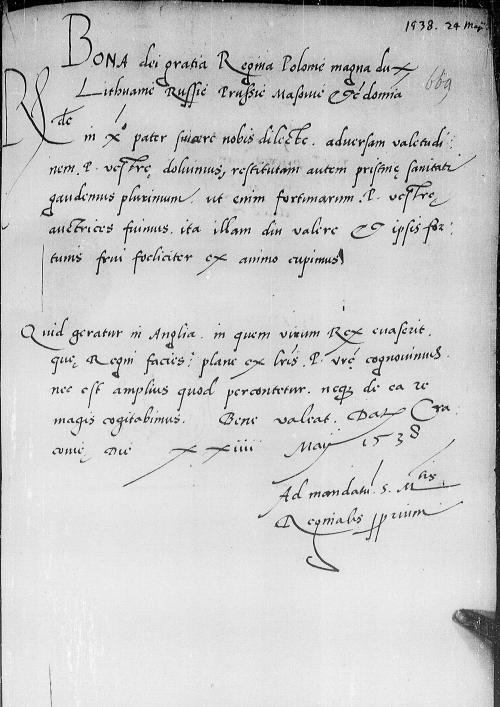 1938. 24 Maji
669
BONA dei gratia Regina Polonie magna dux
Lithuanie Russie Prussie Masovie &c domia
Rde
in Xo pater sincere nobis dilecte. adversam valetudi
nem P. vestrę doluimus, restitutam autem pristinę sanitati
gaudemus plurimum. ut enim fortunarum P. vestrę
auctrices fuimus. ita illam diu valere & ipsis for:
tunis frui foeliciter ex animo cupimus
Quid geratur in Anglia. in quem virum Rex evaserit.
quę Regni facies: plane ex lris P. vrę cognovimus.
nec est amplius quod percontetur. neq; de ea re
magis cogitabimus. Bene valeat. Dat Cra
covię Die xxiiii Maij 1538
Ad mandatu S. Mtis
Reginalis pprium